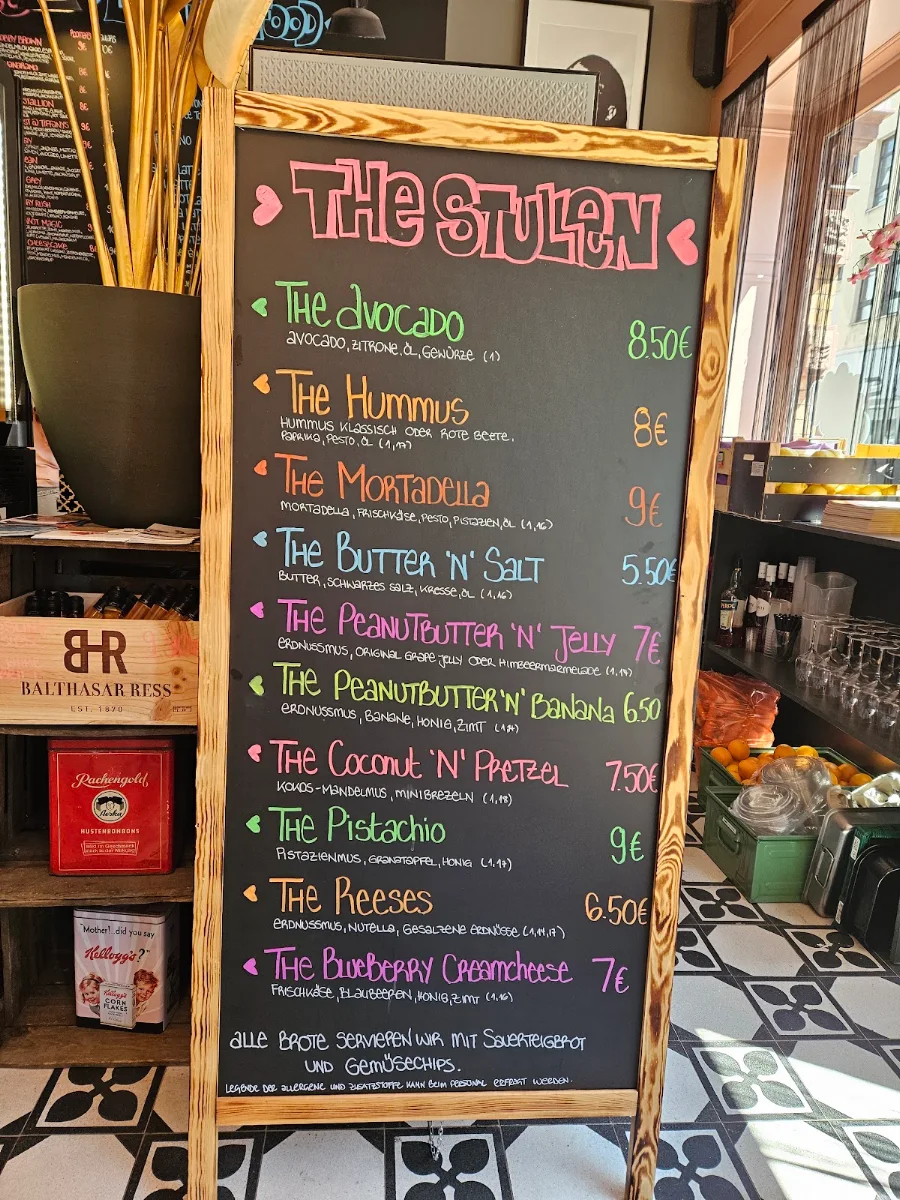 FOOD
STALLION
CHEESECAKE
THE STULLEN
THE AVOCADO 8.50€
AVOCADO, ZITRONE, ÖL, GEWÜRZE (1)
THE HUMMUS 8€
HUMMUS KLASSISCH ODER ROTE BEETE.
PAPRIKA, PESTO, ÖL (1,17)
THE MORTADELLA 9€
MORTADELLA, FRISCHKÄSE, PESTO, PISTAZIEN, ÖL (1,16)
THE BUTTER 'N' SALT 5.50€
BUTTER, SCHWARZES SALZ, KRESSE, ÖL (1,16)
THE PEANUTBUTTER 'N' JELLY 7€
ERDNUSSMUS, ORIGINAL GRAPE JELLY ODER HIMBEERMARMELADE (1,14)
THE PEANUTBUTTER 'N' BANANA 6.50
ERDNUSSMUS, BANANE, HONIG, ZIMT
THE COCONUT 'N' PRETZEL 7.50€
KOKOS-MANDELMUS, MINIBREZELN (1,18)
THE PISTACHIO 9€
PISTAZIENMUS, GRANATAPFEL, HONIG (1,17)
THE REESES 6.50€
ERDNUSSMUS, NUTELLA, GESALZENE ERDNÜSSE (1,14,17)
THE BLUEBERRY CREAMCHEESE 7€
FRISCHKÄSE, BLAUBEEREN, HONIG, ZIMT (1,16)
ALLE BROTE SERVIEREN WIR MIT SAUERTEIGBROT
UND GEMÜSECHIPS.
LEGENDE DER ALLERGENE UND ZUSATZSTOFFE KANN BEIM PERSONAL ERFRAGT WERDEN.
BHR
BALTHASAR RESS
EST. 1870
Rachengold
HUSTENBONBONS
"Mother!..did you say
Kellogg's?"
Kellogg's
CORN
FLAKES